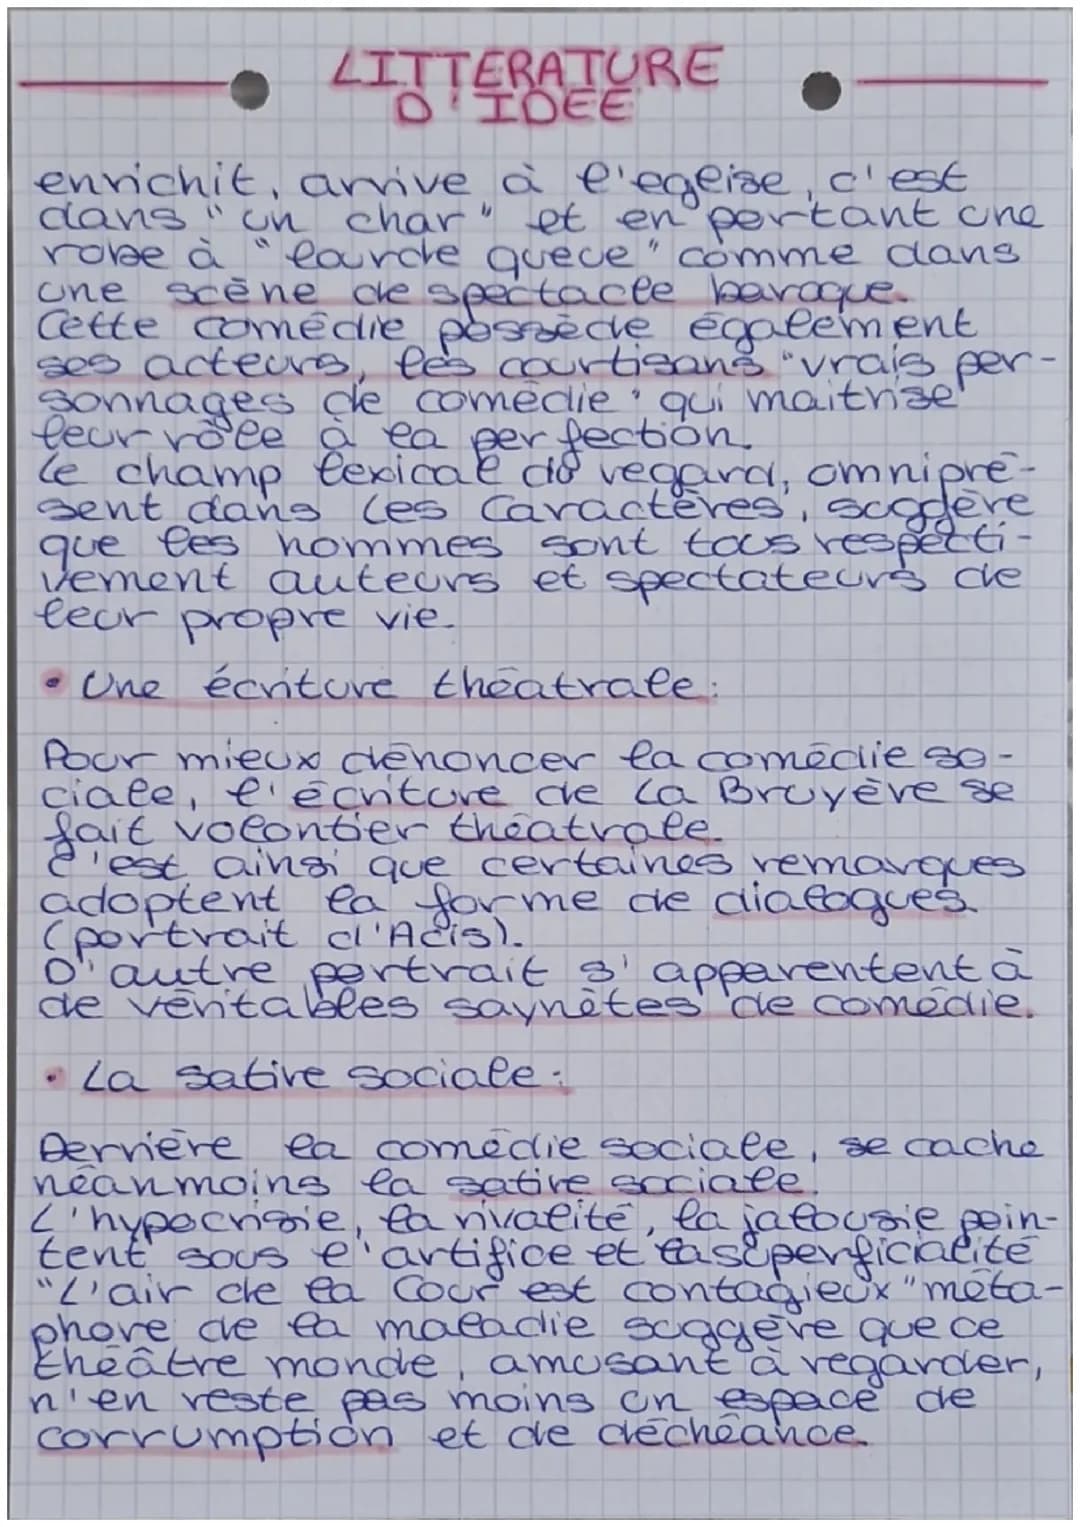 LITTERATURE
D'IDEE
enrichit, arrive à l'egelise, c'est
dans "un char" et en portant une
robe à "lourde queue" comme dans
une scène de spectacle baroque.
Cette comédie possède également
ses acteurs, les courtisans "vrais per-
sonnages de comédie" qui maitrise
leur rôle à la perfection.
Le champ lexical du regard, omnipré-
sent dans Les Caractères, suggère
que les hommes sont tous respecti-
vement auteurs et spectateurs de
leur propre vie.
• Une écriture théatrale :
Pour mieux dénoncer la comédie so-
ciale, l'écriture de La Bruyère se
fait volontier théatrale.
C'est ainsi que certaines remarques
adoptent la forme de dialogues.
(portrait d'Acis).
D'autre portrait s'apparentent à
de véritables saynètes de comédie.
• La satire sociale :
Derrière la comédie sociale, se cache
néanmoins la satire sociale.
L'hypocrisie, la rivalité, la jalousie poin-
tent sous l'artifice et la superficialité
"L'air de la Cour est contagieux" méta-
phore de la maladie suggère que ce
théâtre monde, amusant à regarder,
n'en reste pas moins un espace de
corrumption et de déchéance.